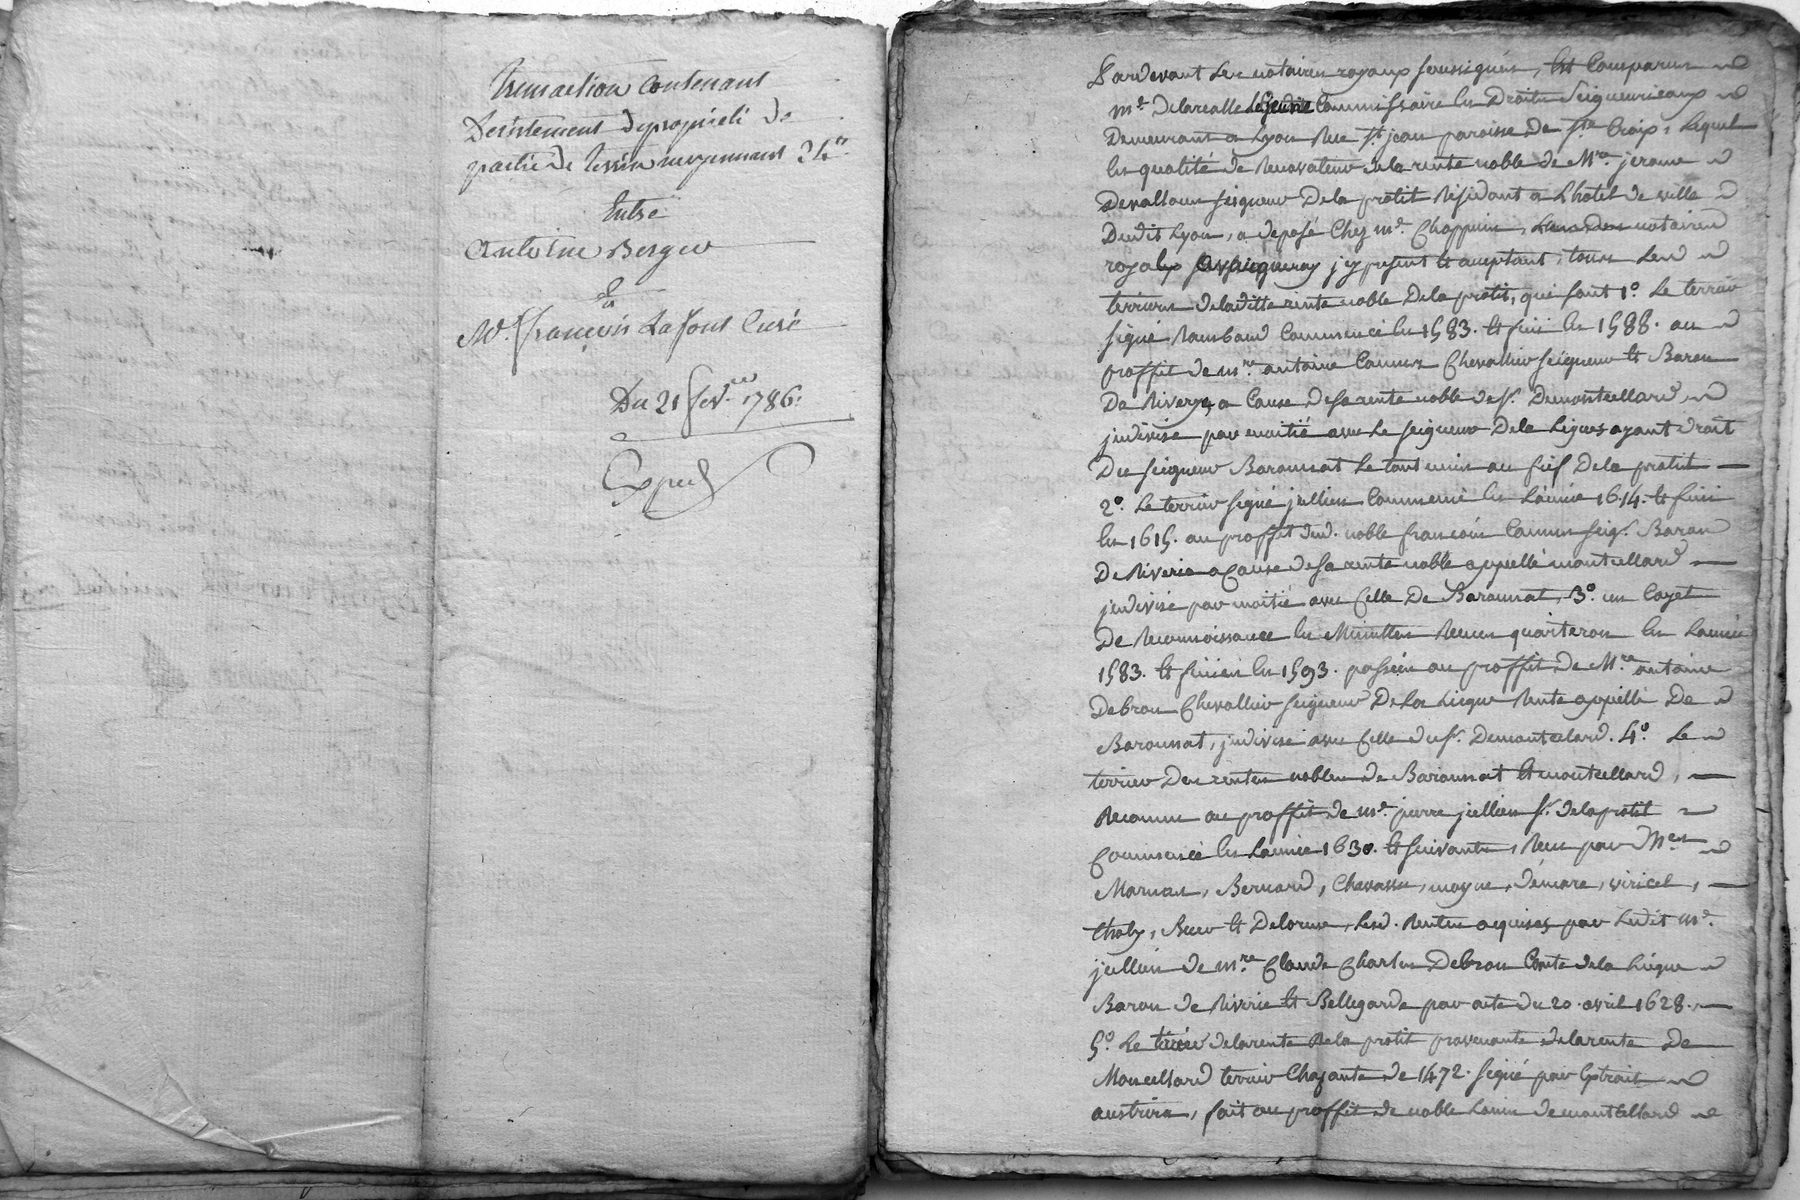 Transaction contenant
Desistement de proprieté de
partie de terrein moyennant 24ᵗᵗ
Entre
Antoine Berger
Et
Mᵉ. françois Lafont Curé
Du 21 fevʳ. 1786.
Exped
Pardevant les notaires royaux soussignés, est Comparu
mᵉ. Delarealle Commissaire en Droits Seigneuriaux
Demeurant a Lyon Rue Sᵗ. jean paroisse de Sᵗᵉ Croix, Lequel
en qualité de Renovateur de la rente noble de Mʳᵉ. jerome
Devallous seigneur De la protit Residant a L'hotel de ville
Dudit Lyon, a deposé Chez mᵉ. Chappuis, notaire
royal j'y present et acceptant, tous Les
terriers de laditte rente noble De la protit, qui sont 1°. Le terrier
signé Rambaud Commencé en 1583. et fini en 1588. au
proffit de mʳᵉ. antoine Camus Chevallier seigneur et Baron
De Riverye a Cause de sa rente noble de Sʳ. Demontcellard
jndivise par moitié avec Le seigneur De la Ligue ayant droit
Du seigneur Baronnat Le tout uni au fief De la protit
2°. Le terrier signé jullien Commencé en L'année 1614. et fini
en 1615. au proffit dud. noble françois Camus seigʳ. Baron
De Riverie a Cause de sa rente noble appellé montcellard
jndivise par moitié avec Celle De Baronnat, 3°. un Cayet
De Reconnoissance en Minuttes Reçues quarteron en L'année
1583. et finies en 1593. passées au proffit de Mʳᵉ antoine
Debron Chevallier seigneur De La Liegue Rente appellé De
Baronnat, jndivise avec Celle du Sʳ. Demontcelard. 4°. Le
terrier Des rentes nobles de Baronnat et montcellard,
Reconnu au proffit de mᵉ. pierre jullien Sʳ. de la protit
Commencé en L'année 1630. et suivantes, Reçu par Mᵉˢ
Marnas, Bernard, Chavassu, moyne, démare, viricel,
thoby, Buer et Delorme, Lesd. Rentes acquises par Ledit mᵉ.
jullien de mʳᵉ Claude Charles Debron Comte de la Liegue
Baron de Riverie et Bellegarde par acte du 20. avril 1628.
5°. Le terrier de la rente De la protit provenante de la rente De
Moncellard terrier Chazante de 1472. signé par Extrait
austrein, fait au proffit de noble Louis demontcellard